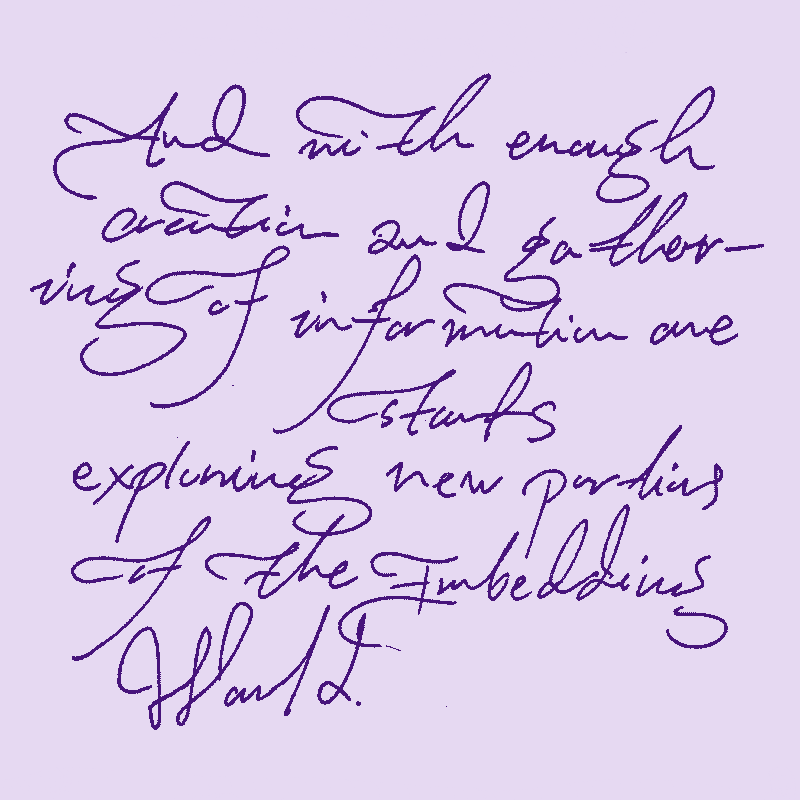 And with enough
creation and gather-
ing of information one
starts
exploring new portions
of the Imbedding
World.